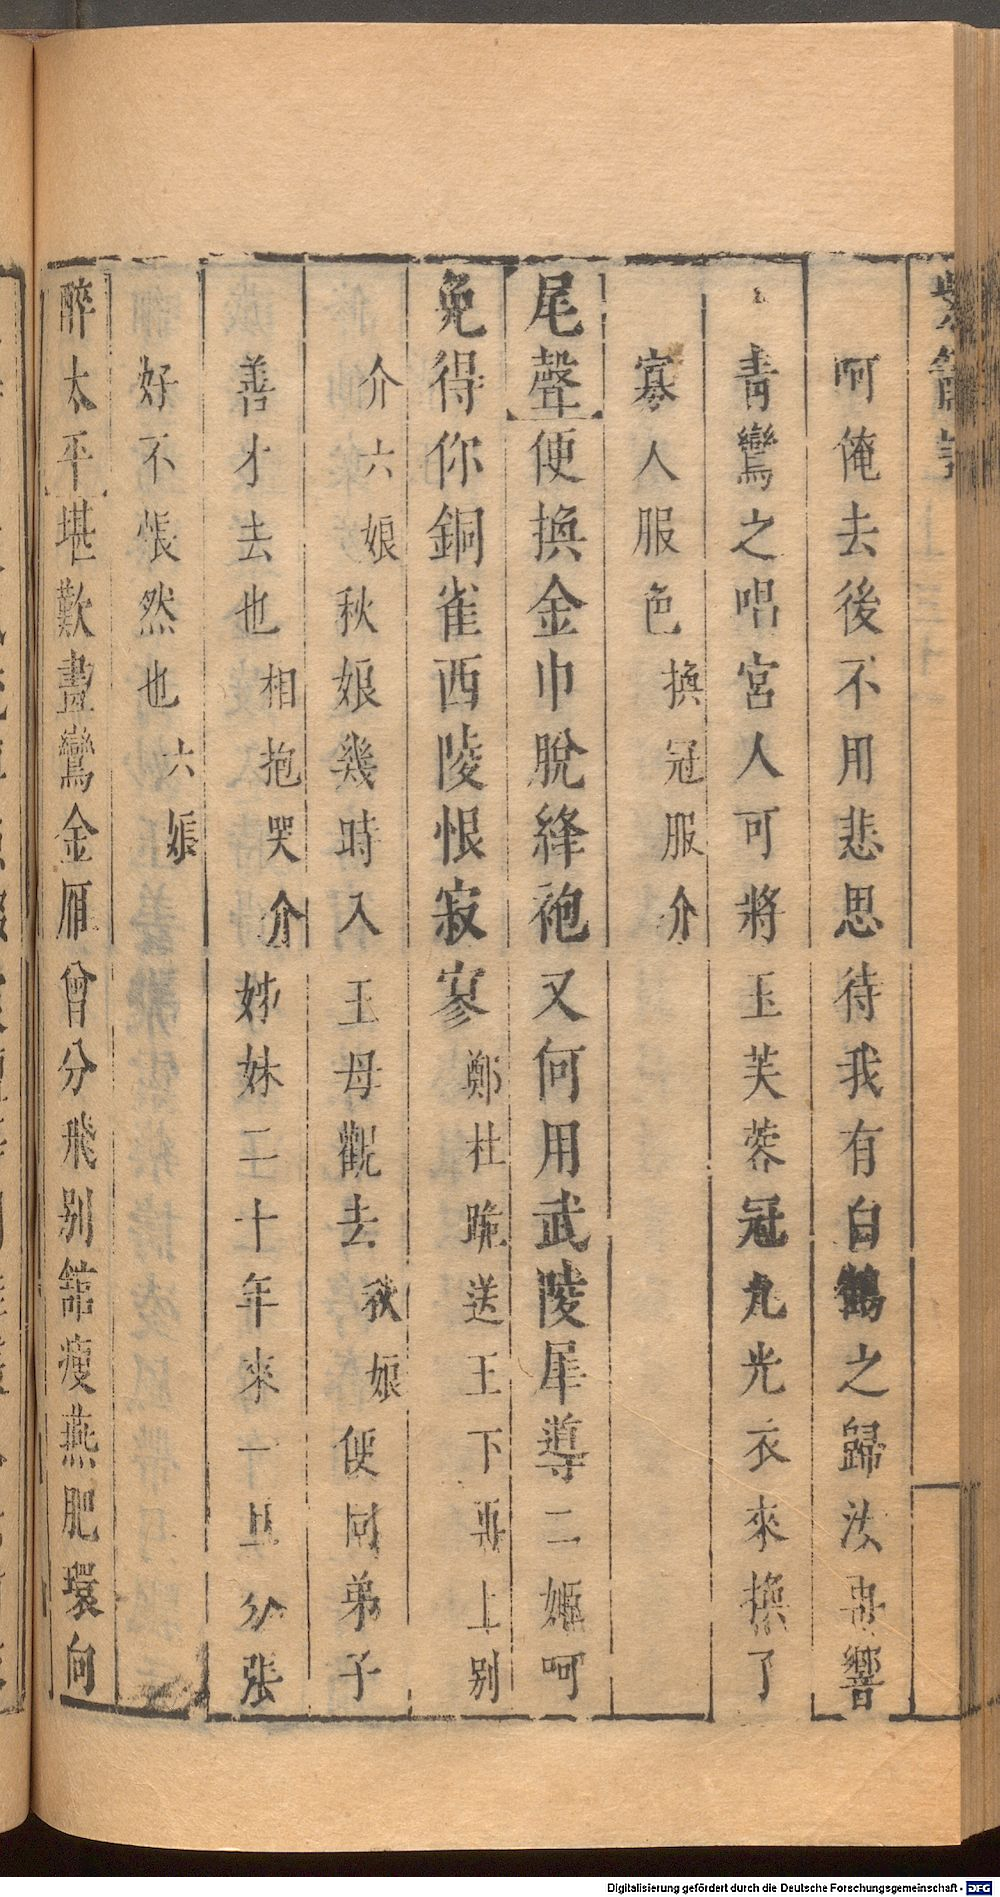 呵俺去後不用悲思待我有白鶴之歸汝再響
青鸞之唱宮人可將玉芙蓉冠九光衣來換了
寡人服色換冠服介
尾聲便換金巾脫絳袍又何用武陵犀導二姬呵
免得你銅雀西陵恨寂寥鄭杜跪送王下再上别
介六娘秋娘幾時入王母觀去秋娘便同弟子
善才去也相抱哭介姊妹二十年來一旦分張
好不悵然也六娘
醉太平堪歎畫鸞金雁曾分飛别舘瘦燕肥環向
Digitalisierung gefördert durch die Deutsche Forschungsgemeinschaft - DFG